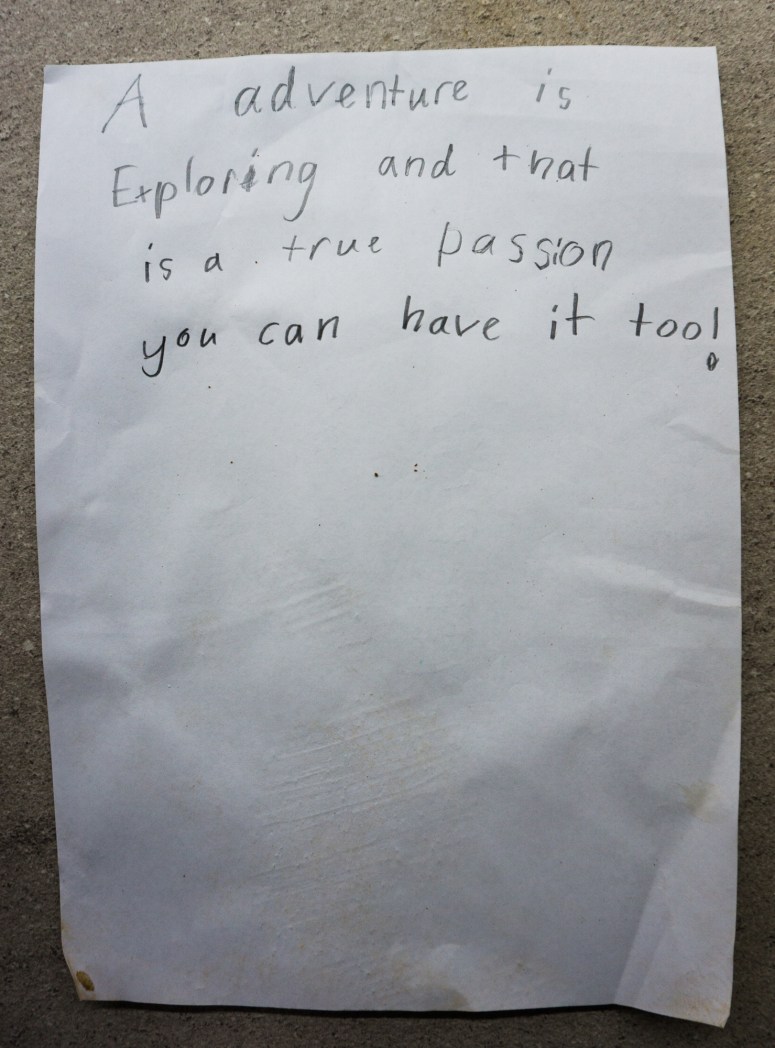 A adventure is
Exploring and that
is a true passion
you can have it too!